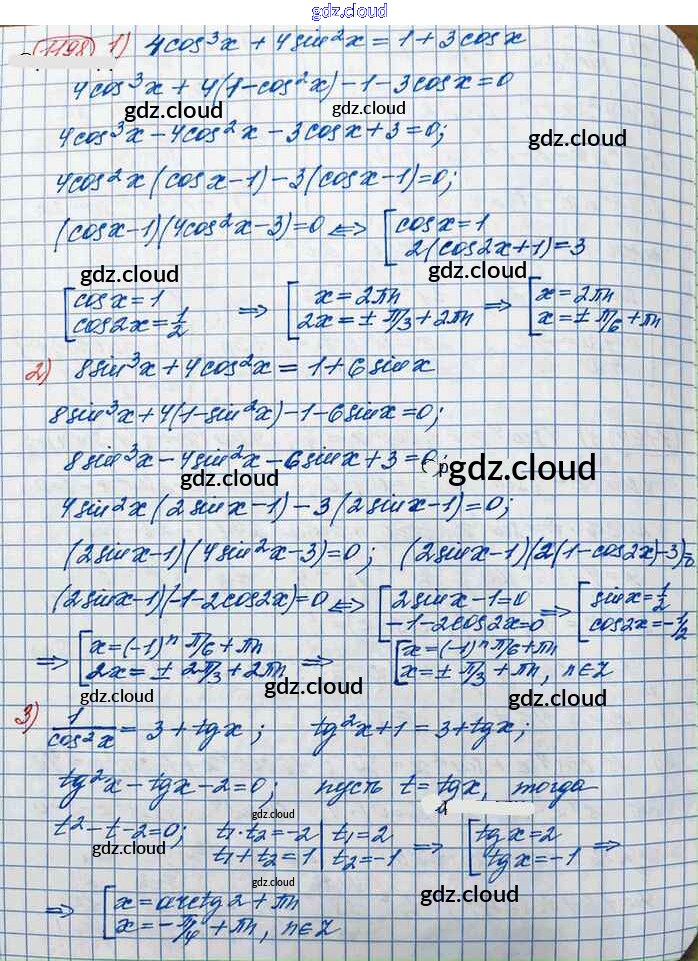 gdz.cloud
1198 1) 4cos³x + 4sin²x = 1 + 3cosx
4cos³x + 4(1-cos²x) - 1 - 3cosx = 0
gdz.cloud
gdz.cloud
4cos³x - 4cos²x - 3cosx + 3 = 0;
4cos²x(cosx-1) - 3(cosx-1) = 0;
(cosx-1)(4cos²x-3) = 0 <=> [cosx = 1
2(cos2x+1) = 3
gdz.cloud gdz.cloud
[cosx = 1 => [x = 2πn => [x = 2πn
cos2x = 1/2 2x = ± π/3 + 2πn x = ± π/6 + πn
gdz.cloud
gdz.cloud
2) 8sin³x + 4cos²x = 1 + 6sinx
8sin³x + 4(1-sin²x) - 1 - 6sinx = 0;
8sin³x - 4sin²x - 6sinx + 3 = 0;
gdz.cloud
4sin²x(2sinx-1) - 3(2sinx-1) = 0;
(2sinx-1)(4sin²x-3) = 0; (2sinx-1)(2(1-cos2x)-3) = 0
gdz.cloud gdz.cloud
(2sinx-1)(-1-2cos2x) = 0 <=> [2sinx-1 = 0 => [sinx = 1/2
-1-2cos2x = 0 cos2x = -1/2
=> [x = (-1)ⁿ π/6 + πn => [x = (-1)ⁿ π/6 + πn
2x = ± 2π/3 + 2πn x = ± π/3 + πn, n∈Z
gdz.cloud gdz.cloud
3) 1/cos²x = 3 + tgx; tg²x + 1 = 3 + tgx;
tg²x - tgx - 2 = 0; пусть t = tgx, тогда
gdz.cloud
t² - t - 2 = 0; t₁·t₂ = -2 | t₁ = 2 => [tgx = 2 =>
t₁ + t₂ = 1 | t₂ = -1 tgx = -1
gdz.cloud gdz.cloud
gdz.cloud
=> [x = arctg2 + πn
x = -π/4 + πn, n∈Z
gdz.cloud